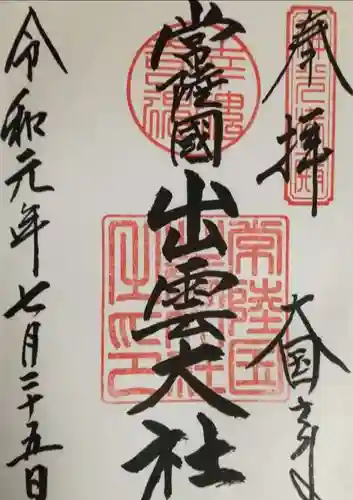 奉拝
大国主命
常陸國
出雲大社
令和元年七月二十五日
常陸国出雲大社之印